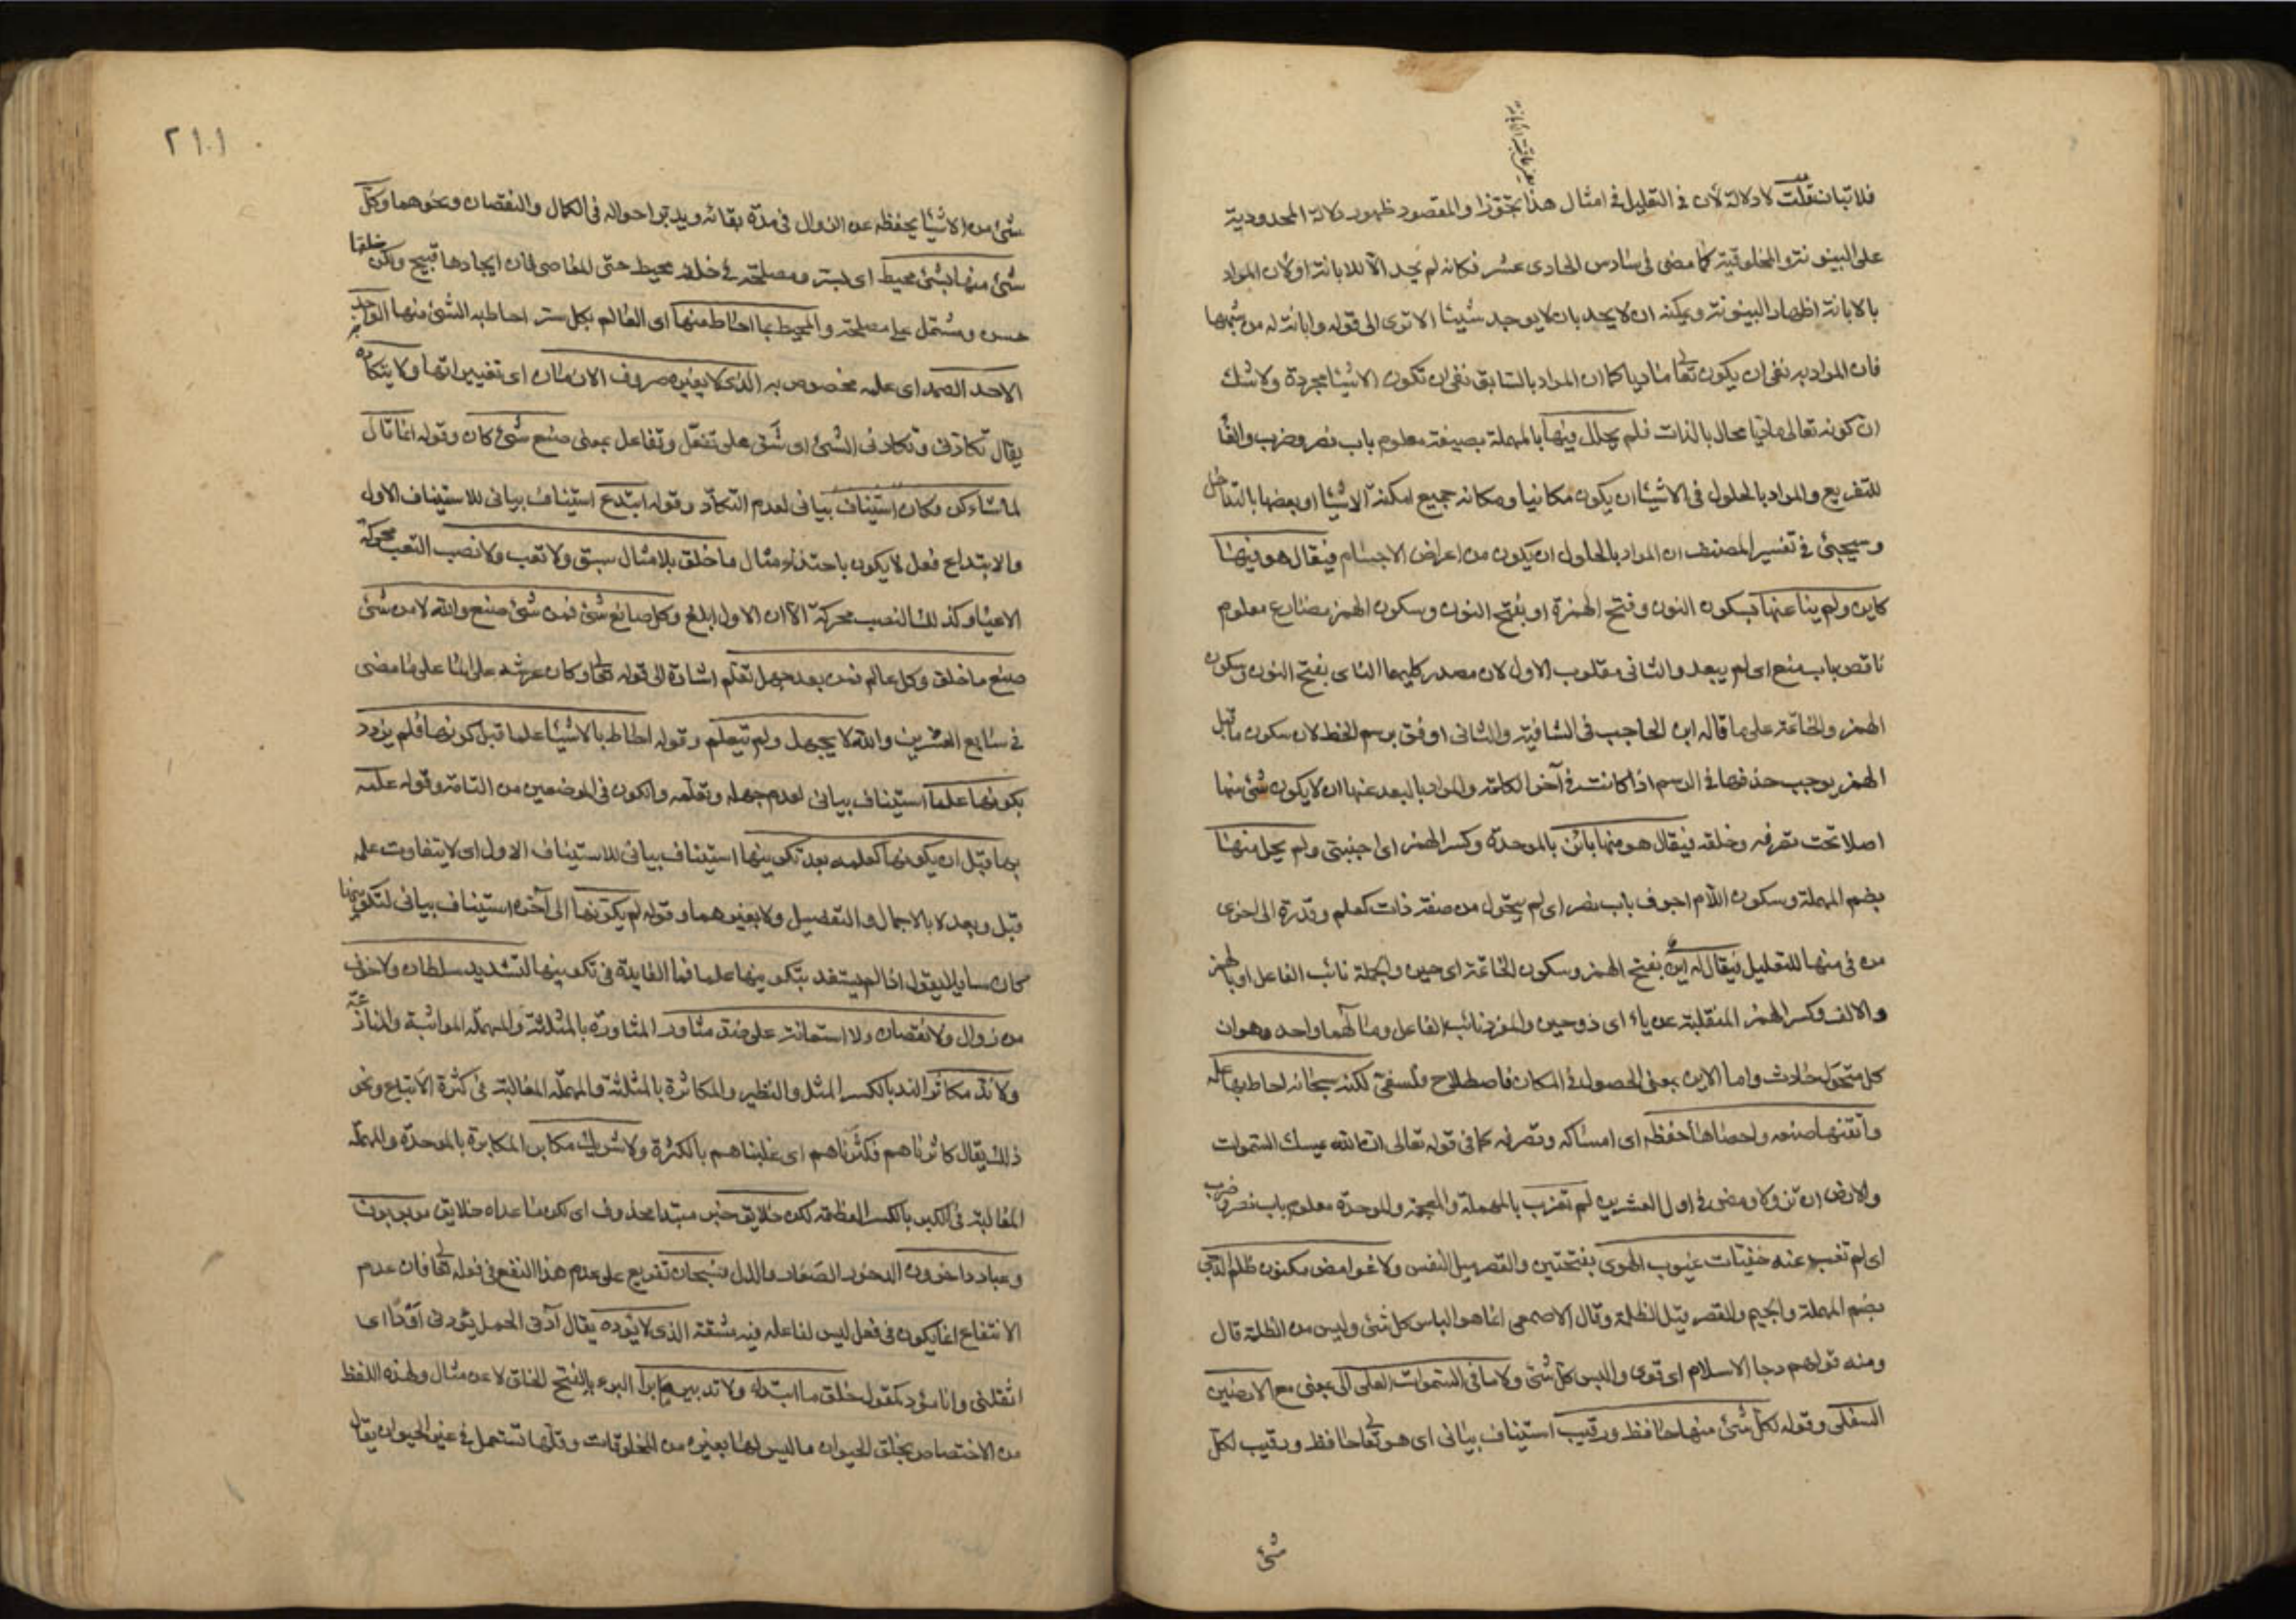 فلا تباين قلت لا دلالة لان في التعليل في امثال هذا تجوّزا والمقصود ظهور دلالة المحدودية
على البينونة والمخلوقية كما مضى في سادس الحادى عشر فكانه لم يحد الا للابانة او لان المراد
بالابانة اظهار البينونة ويمكنه ان لا يحد بان لا يوجد شيئا الا ترى الى قوله وابانة له من شبهها
فان المراد به نفى ان يكون تعا ماديا كما ان المراد بالسابق نفى ان تكون الاشيا مجردة ولا شك
ان كونه تعالى ماديا محال بالذات فلم يحلل فيها بالمهملة بصيغة معلوم باب نصر وضرب والفا
للتفريع والمراد بالحلول في الاشيا ان يكون مكانيا ومكانه جميع امكنة الاشيا او بعضها بالتداخل
وسيجئ في تفسير المصنف ان المراد بالحلول ان يكون من اعراض الاجسام فيقال هو فيها
كاين ولم ينأ عنها بسكون النون وفتح الهمزة او بفتح النون وسكون الهمز مضارع معلوم
ناقص باب منع اى لم يبعد والثانى مقلوب الاول لان مصدر كليهما الناى بفتح النون وسكون
الهمز والخاتمة على ما قاله ابن الحاجب فى الشافية والثانى اوفق برسم الخط لان سكون ما قبل
الهمز يوجب حذفها في الرسم اذا كانت في آخر الكلمة والمراد بالبعد عنها ان لا يكون شئ منها
اصلا تحت تصرفه وخلقه فيقال هو منها بائن بالموحدة وكسر الهمز اى اجنبى ولم يحل منها
بضم المهملة وسكون اللام اجوف باب نصر اى لم يتحول من صفة ذات كعلم وقدرة الى اخرى
من فى منها للتعليل فيقال له اين بفتح الهمز وسكون الخاتمة اى حين والجملة نائب الفاعل او بالهمز
والالف وكسر الهمز المنقلبة عن ياء اى ذو حين والمفرد نائب الفاعل ومآلهما واحد وهو ان
كل متحول حادث واما الاين بمعنى الحصول في المكان فاصطلاح فلسفى لكنه سبحانه احاط بها علمه
واتقنها صنعه واحصاها حفظه اى امساكه وتصرفه كما فى قوله تعالى ان الله يمسك السموات
والارض ان تزولا ومضى في اول العشرين لم تعزب بالمهملة والمعجمة والموحدة معلوم باب نصر وضرب
اى لم تغب عنه خفيات غيوب الهوى بفتحتين والقصر ميل النفس ولا غوامض مكنون ظلم الدجى
بضم المهملة والجيم والقصر قيل الظلمة وقال الاصمعى انما هو الباس كل شئ وليس من الظلمة قال
ومنه قولهم دجا الاسلام اى قوى والبس كل شئ ولا ما فى السموات العلى الى بمعنى مع الارضين
السفلى وقوله لكل شئ منها حافظ ورقيب استيناف بيانى اى هو تعا حافظ ورقيب لكل
شئ
٢١١
شئ من الاشيا يحفظه عن الزوال فى مدة بقائه ويدبر احواله فى الكمال والنقصان ونحوهما وكل
شئ منها بشئ محيط اى بستر ومصلحة في خلقه محيط حتى المعاصى فان ايجادها قبيح ولكن خلقها
حسن ومشتمل على مصلحة والمحيط بما احاط منها اى العالم بكل ستر احاط به الشئ منها الواحد
الاحد الصمد اى علمه مخصوص به الذى لا يغيره صروف الازمان اى تغييراتها ولا يتكأده
يقال تكأدنى وتكاءدنى الشئ اى شق على تفعل وتفاعل بمعنى صنع شئ كان وقوله انما قال
لما شاء كن فكان استيناف بيانى لعدم التكأد وقوله ابتدع استيناف بيانى للاستيناف الاول
والابتداع فعل لا يكون باحتذاء مثال ما خلق بلا مثال سبق ولا تعب ولا نصب التعب محركة
الاعيا وكذلك النصب محركة الا ان الاول ابلغ وكل صانع شئ فمن شئ صنع والله لا من شئ
صنع ما خلق وكل عالم فمن بعد جهل تعلم اشارة الى قوله تعا وكان عرشه على الما على ما مضى
في سابع العشرين والله لا يجهل ولم يتعلم وقوله احاط بالاشيا علما قبل كونها فلم يزدد
بكونها علما استيناف بيانى لعدم جهله وتعلمه والكون فى الموضعين من التامة وقوله علمه
بها قبل ان يكونها كعلمه بعد تكوينها استيناف بيانى للاستيناف الاول اى لا يتفاوت علمه
قبل وبعد لا بالاجمال والتفصيل ولا بغيرهما وقوله لم يكونها الى آخره استيناف بيانى لتكوينها
كان سايلا يقول اذا لم يستفد بتكوينها علما فما الفايدة فى تكوينها لتشديد سلطان ولا خوف
من زوال ولا نقصان ولا استعانة على ضد مثاور المثاورة بالمثلثة والمهملة المواثبة والمنازعة
ولا ند مكاثر الند بالكسر المثل والنظير والمكاثرة بالمثلثة والمهملة المغالبة فى كثرة الاتباع ونحو
ذلك يقال كاثرناهم فكثرناهم اى غلبناهم بالكثرة ولا شريك مكابر المكابرة بالموحدة والمهملة
المغالبة فى الكبر بالكسر العظمة لكن خلايق خبر مبتدا محذوف اى لكن ما عداه خلايق مربوبون
وعباد داخرون الدخور الصغار والذل فسبحان تفريع على عدم هذا النفع فى فعله تعا فان عدم
الانتفاع انما يكون فى فعل ليس لفاعله فيه مشقة الذى لا يؤده يقال آدنى الحمل يؤدنى اودا اى
اثقلنى وانا مؤد كمقول خلق ما ابتدا ولا تدبير ما برأ البرء بالفتح الخلق لا عن مثال ولهذه اللفظ
من الاختصاص بخلق الحيوان ما ليس لها بغيره من المخلوقات وقلما تستعمل في غير الحيوان يقال